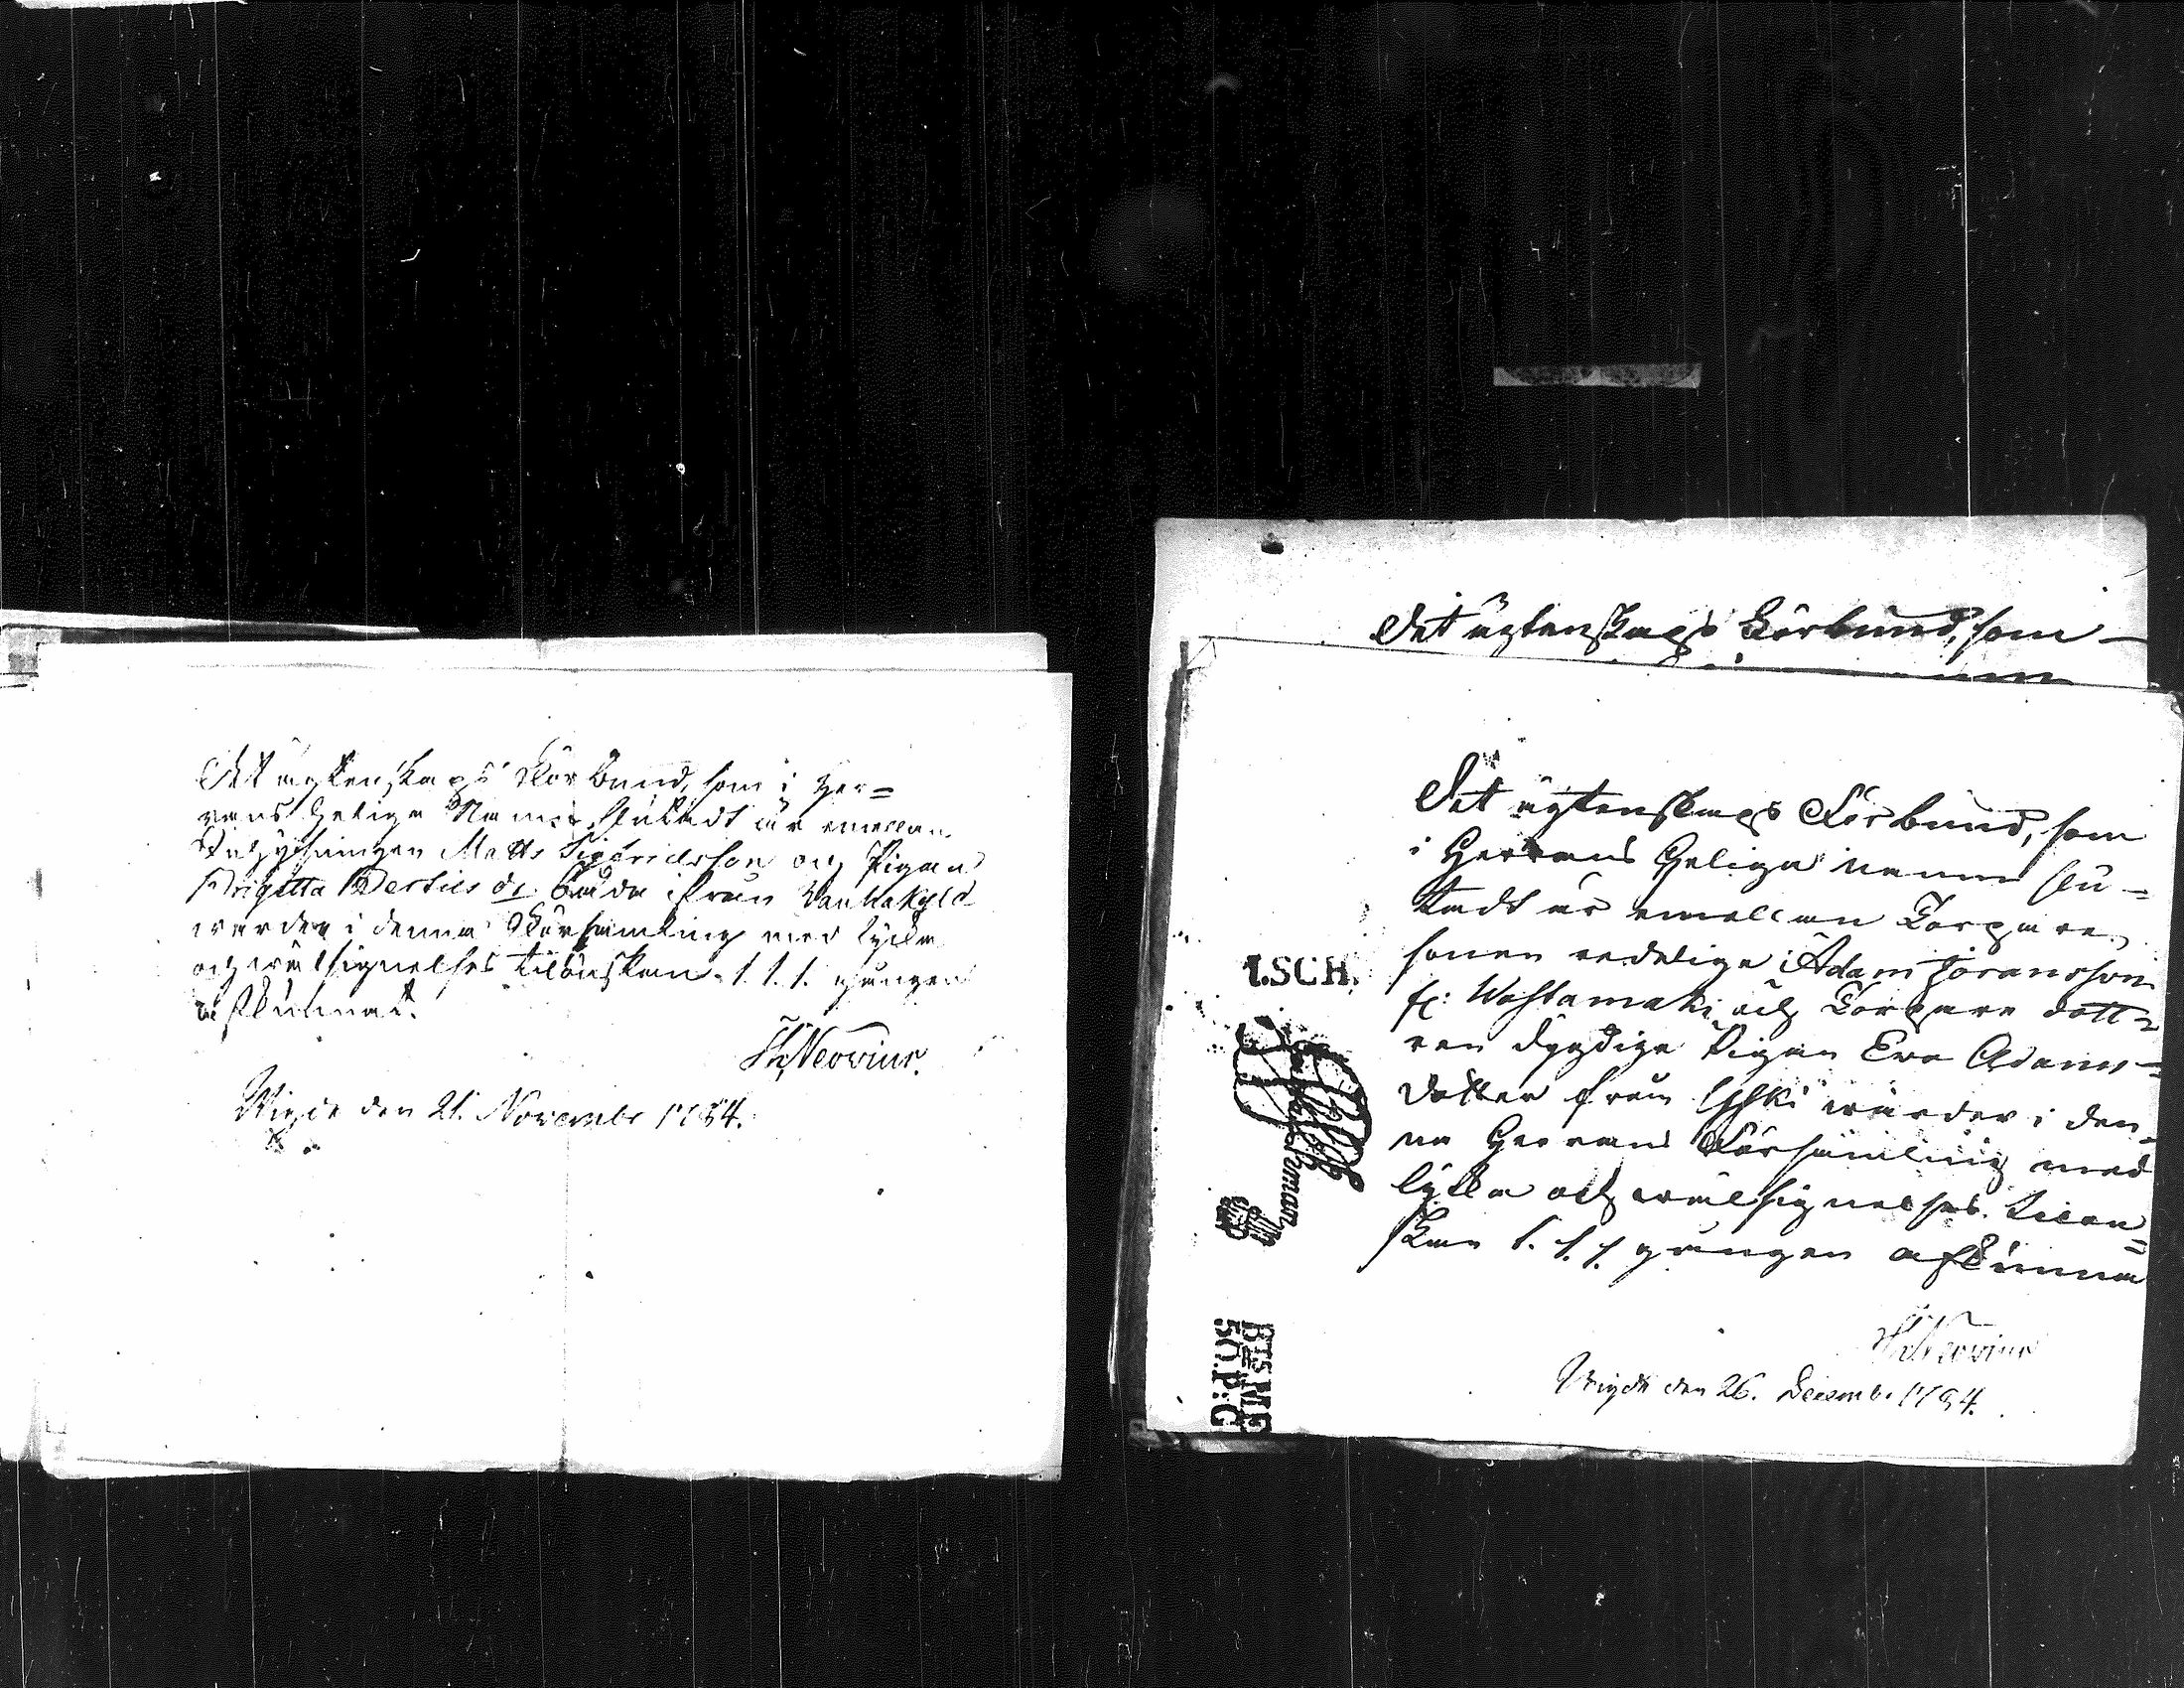 Det ägtenskaps Förbund, som i Her=
rans helige Namn slutadt är emellan
Inhysingen Matts Sigfridsson och Pigan
Brigitta Bertils dr. både ifrån Vanhakylä
warder i denna Församling med lycko
och wälsignelses tilönskan 1. 1. 1. gången
afkunnat.
H Neovius.
Wigde den 21. Novembr 1784.
Det ägtenskaps Förbund, som
Det ägtenskaps Förbund, som
i Herrans Heliga namn slu=
tadt är emellan Torpare
sonen redelige Adam Göransson
fr: Wastamäki och Torpare dott=
ren dygdige Pigan Eva Adams=
dotter från warder i den=
na Herrans Församling med
lycko och wälsignelses tilön=
skan 1. 1. 1. gången afkunna
H Neovius
Wigde den 26. Decemb. 1784.
1.SCH.
RTS.MG
50.P:G